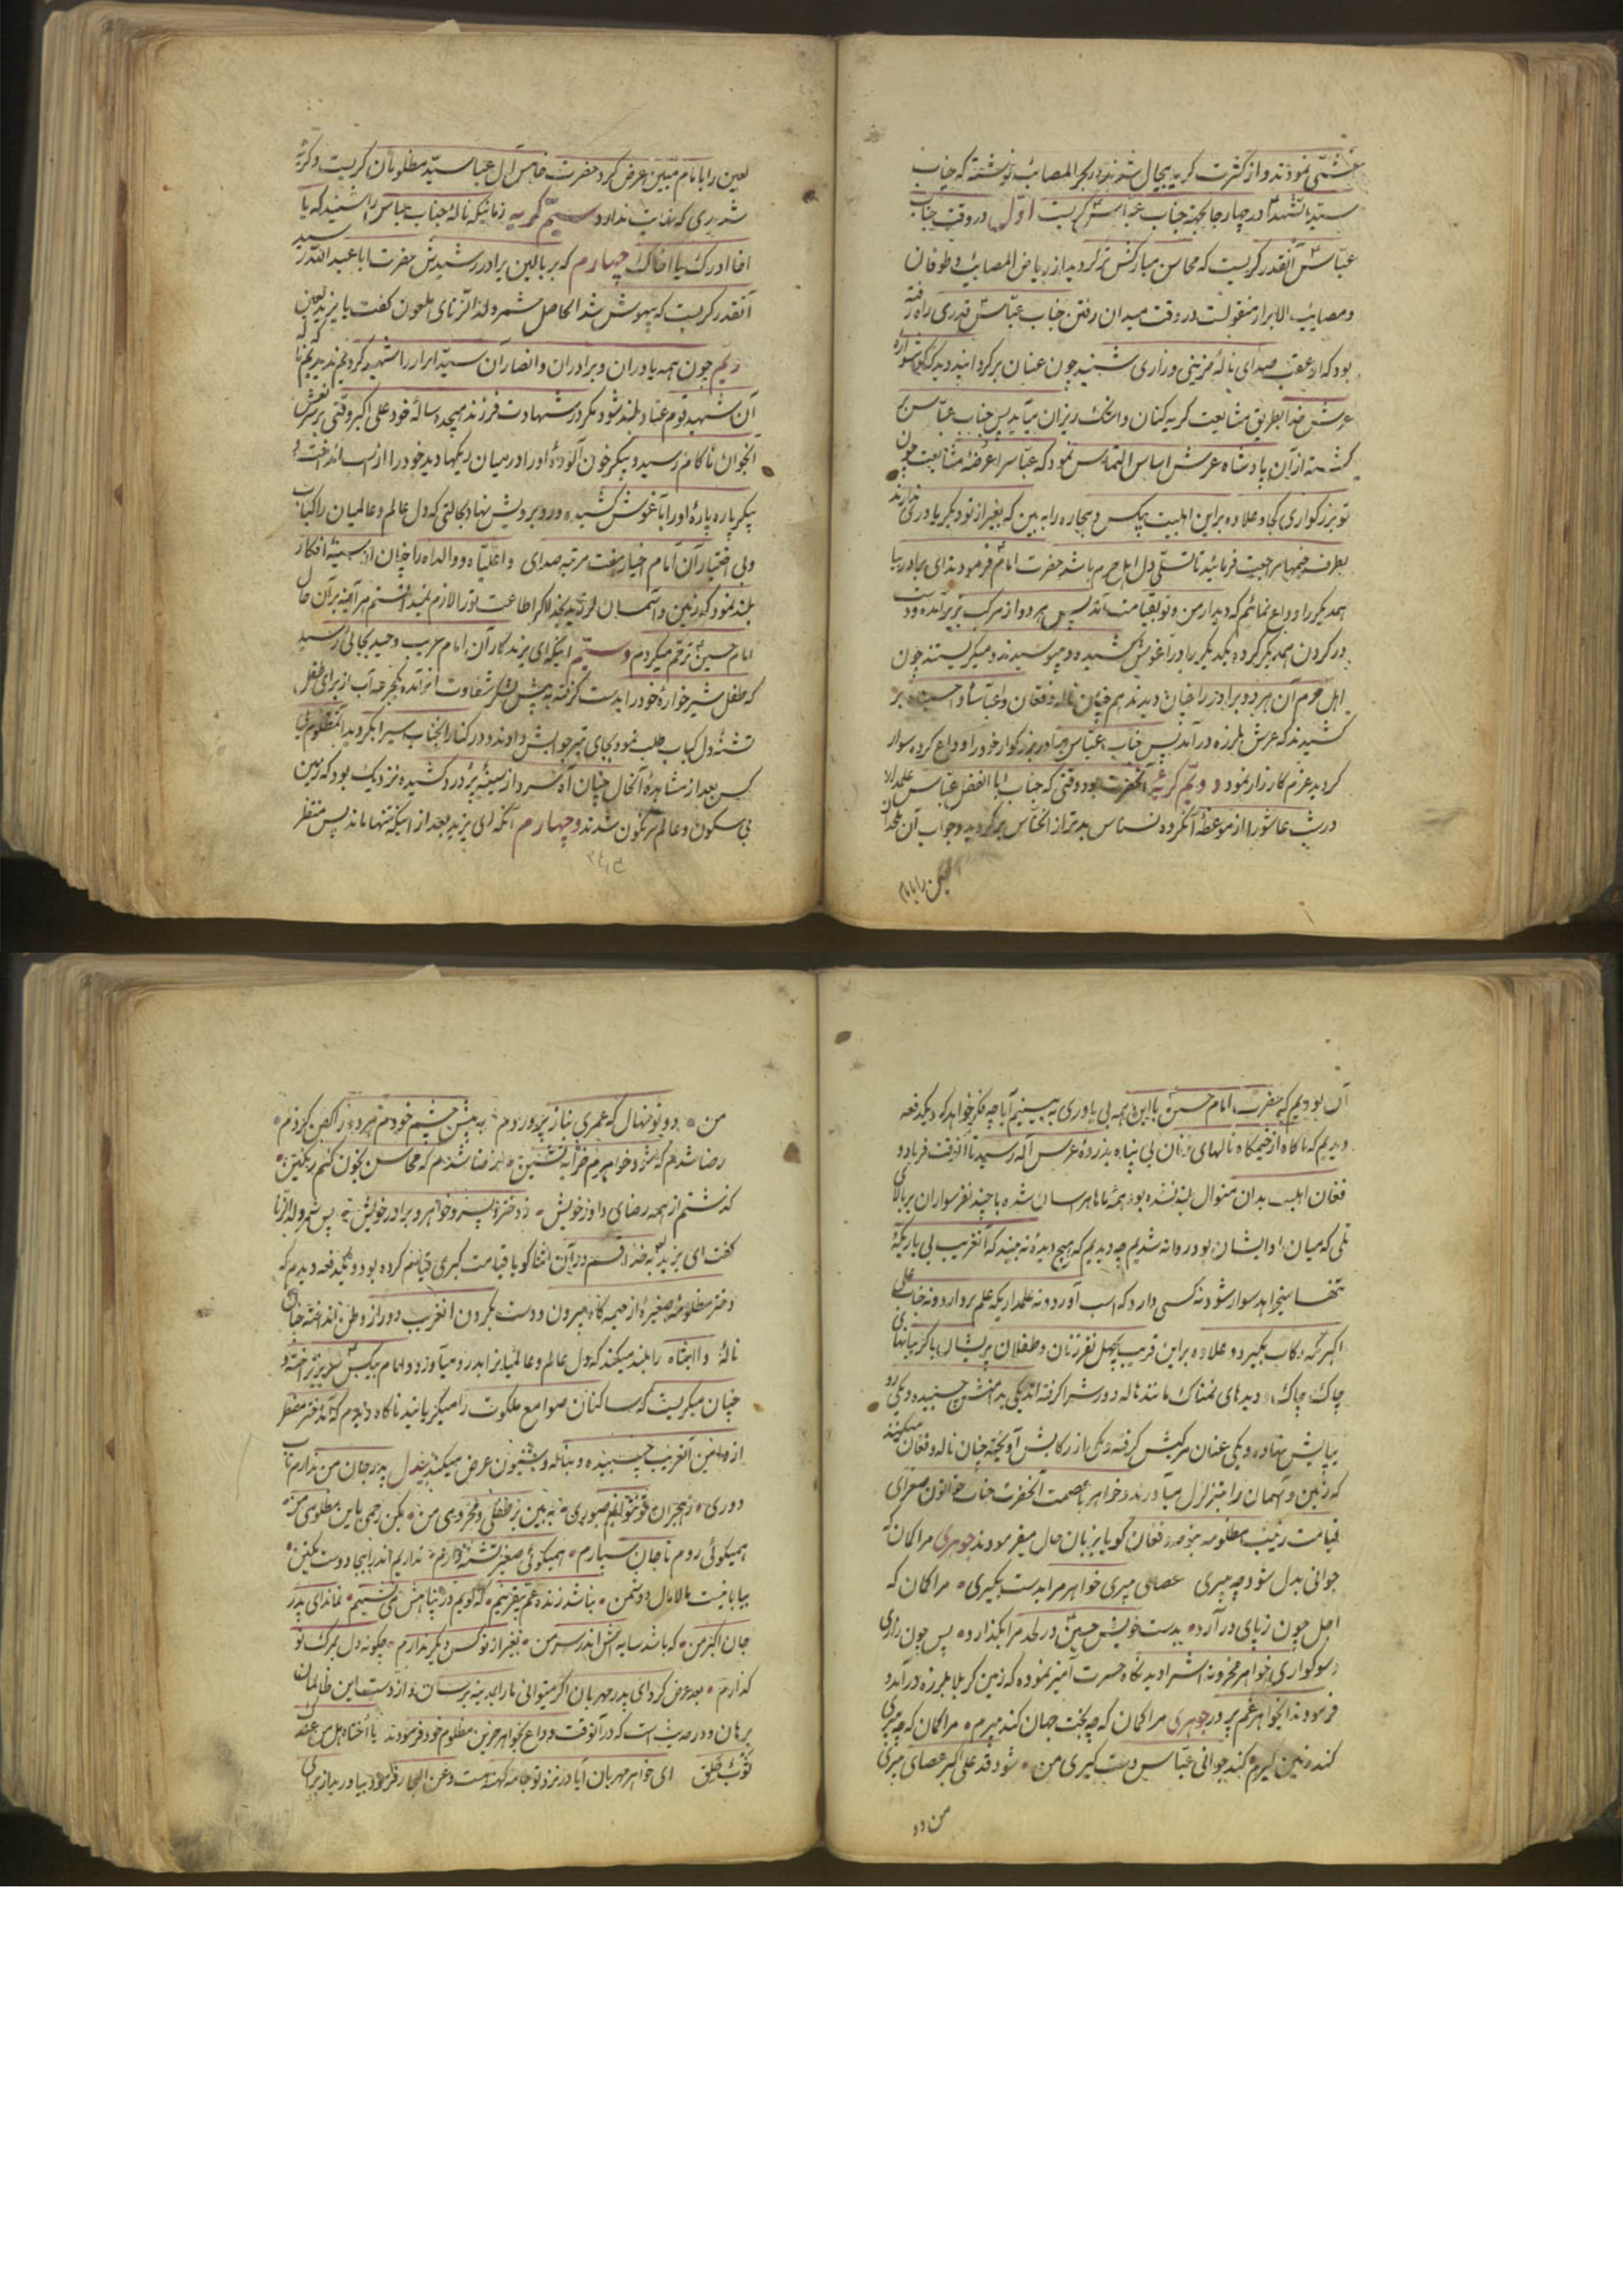 غشّی نمودند و از کثرت کریه بیحال شدند در بحر المصائب نوشته که جناب
سیّد الشهدا در چهار جا بجهته جناب عباس کریست اوّل در وقت جناب
عبّاس آنقدر کریست که محاسن مبارکش تر کردید از ریاض المصایب و طوفان
و مصایب الابرار منقولست در وقت میدان رفتن جناب عبّاس قدری راه رفته
بود که از عقب صدای نالهٔ حزینی و زاری شنید چون عنان برکردانید دید که کوشواره
عرش خدا بطریق مشایعت کریه کنان و اشک ریزان میآید پس جناب عبّاس
کشته از آن پادشاه عرش اساس التماس نمود که عباس را عرضه مشایعت چون
تو بزرکواری کجا و علاوه براین اهلبیت بیکس و بیچاره را به بین که بغیر از تو دیکر یاوری ندارند
بطرف خیمها مراجعت فرمائید تا تسلّی دل اهل حرم باشد حضرت امام فرمودند ای برادر بیا
همدیکر را وداع نمائیم که دیدار من و تو بقیامت افتد پس هر دو از مرکب بزیر آمده و دست
در کردن همدیکر کرده یکدیکر را در آغوش کشیده و میبوسیدند و میکریستند چون
اهل حرم آن هر دو برادر را چنان دیدند هم چنان ناله و فغان واعباسا و احسیناه بر
کشیدند که عرش بلرزه در آمد پس جناب عبّاس برادر بزرکوار خود را وداع کرده سوار
کردید عزم کارزار نمود دویّم کریه آنحضرت بود وقتی که جناب ابا الفضل عبّاس علمدار
در شب عاشورا از موعظهٔ آنکروه نسناس بدتر از الخنّاس برکردید و جواب آن ملحدان
لعین را بامام
لعین را بامام مبین عرض کرد حضرت خامس آل عبا سیّد مظلومان کریست و کریه
شدیدی که نهایت ندارد سیّم کریه زمانیکه نالهٔ جناب عباس را شنید که یا
اخا ادرک یا اخاک چهارم که بر بالین برادر رشیدش حضرت ابا عبد الله رسید
آنقدر کریست که بیهوش شد الحاصل شمر ولد الزنای ملعون کفت یا یزید لعین
دیّم چون همه یاوران و برادران و انصاران سیّد ابرار را شهید کردیم ندیدیم که نالهٔ
آن شهید قوم عناد بلند شود مکر در شهادت فرزند هیجده سالهٔ خود علی اکبر وقتی بر سر نعش
آنجوان ناکام رسید و پیکر خون آلودهٔ او را در میان ریکها دید خود را از اسب انداخت و
پیکر پاره پارهٔ او را بآغوش کشیده و رو برویش نهاد بحالتی که دل عالم و عالمیان را کباب
و بی اختیار آن امام اخیار هفت مرتبه صدای واعلیّاه و والداه را چنان از سینهٔ افکار
بلند نمود که زمین و آسمان لرزید بخدا اکر اطاعت تو را لازم نمیدانستم هر آینه بر آن حال
امام حسین ترحّم میکردم و سیّم آنکه ای یزید کار آن امام غریب وحید بجائی رسید
که طفل شیرخوارهٔ خود را بدست کرفته به پیش لشکر شقاوت اثر آمده یکجرعه آب از برای طفل
تشنه دل کباب طلب نمود بجای تیر جوابش دادند و در کنار آنجناب سیراب کردید آنمظلوم بی
کس بعد از مشاهدهٔ آنحال چنان آه سرد از سینهٔ پر درد کشیده نزدیک بود که زمین
بی سکون و عالم سرنکون شدند و چهارم آنکه ای یزید بعد از اینکه تنها ماند پس منتظر
آن بودیم که حضرت امام حسین با این همه بی یاوری به بینیم آیا چه فکر خواهد کرد که یکدفعه
دیدیم که ناکاه از خیمکاه نالهای زنان بی پناه بذروهٔ عرس اله رسید تا آنوقت فریاد و
فغان اهلبیت بدان منوال بلند نشده بود همهٔ ماها هراسان شده با چند نفر سواران بر بالای
تلی که میان ما و ایشان بود روانه شدیم چه دیدیم که هیچ دیدهٔ نه بیند که آنغریب بی یار یکهٔ
تنها میخواهد سوار شود نه کسی دارد که اسب آورد و نه علمدار یکه علم بردارد و نه جناب علی
اکبر که رکاب بکیرد و علاوه براین قریب بچهل نفر زنان و طفلان پریشان با کریبانهای
چاک چاک و دیدهای نمناک مانند هاله دورش را کرفته اند یکی بدامنش چسبیده و یکی رو
بپایش نهاده و یکی عنان مرکبش کرفته و یکی از رکابش آویخته چنان ناله و فغان میکنند
که زمین و آسمان را بتزلزل میآورند و خواهر با عصمت آنحضرت جناب خواتون صحرای
قیامت زینب مظلومه بنوحه و فغان کویا بزبان حال میفرمودند جوهری مرا کمان که
جوانی بدل شود به پیری عصای پیری خواهر مرا بدست بکیری مرا کمان که
اجل چون ز پای در آرد بدست خویش حسین در لحد مرا بکذارد پس چون زاری
و سوکواری خواهر محزونه اش را دید نکاه حسرت آمیز نموده که زمین کربلا بلرزه در آمد و
فرمودند ایخواهر غم پرور جوهری مرا کمان که چه بخت جهان کند پیرم مرا کمان که چه پیری
کند زمین کیرم کند جوانی عبّاس دست کیری من شود قد علی اکبر عصای پیری
من دو
من دو نو نهال که عمری بناز پروردم به پیش چشم خودم هر دو را کفن کردم
رضا شدم که شود خواهرم خرابه نشین رضا شدم که محاسن بخون کنم رنکین
کذشتم از همه رضای داور خویش ز دختر و پسر و خواهر و برادر خویش پس شمر ولد الزنا
کفت ای یزید به خدا قسم در آن اثنا کویا قیامت کبری قیام کرده بود و یکدفعه دیدم که
دختر مظلومهٔ صغیره از خیمه کاه بیرون و دست بکردن آنغریب دور از وطن انداخته چنان
نالهٔ وا ابتاه را بلند میکند که دل عالم و عالمیانرا بدرد میآورد و امام بیکس سر بزیر انداخته و
چنان میکریست که ساکنان صوامع ملکوت را میکریانید ناکاه دیدم که آندختر مضطر
از دامن آنغریب چسبیده و بناله و شیون عرض میکند بیدل پدر جان من ندارم تاب
دوری ز هجران تو نتوانم صبوری به بین بر طفلی و محزونی من بکن رحمی باین مظلومی من
همیکوئی روم تا جان سپارم همیکوئی صغیر تشنه دارم نداریم اندر اینجا دوست یکتن
بیابانیست مالامال دشمن نباشد زنده عمّ بیقرینم که کویم در پناهش می نشینم نماند ای پدر
جان اکبر من که باشد سایه اش اندر سر من بغیر از تو کس دیکر ندارم چکونه دل بمرک تو
کذارم بعد عرض کرد ای پدر مهربان اکر میتوانی ما را بمدینه برسان و از دست این ظالمان
برهان و در حدیث است که در آنوقت وداع بخواهر حزین مظلوم خود فرمودند یا اختاه هل من عندک
ثوب خلق ای خواهر مهربان آیا در نزد تو جامه کهنه هست و عن البحار فرمود بیاور بیاز برای